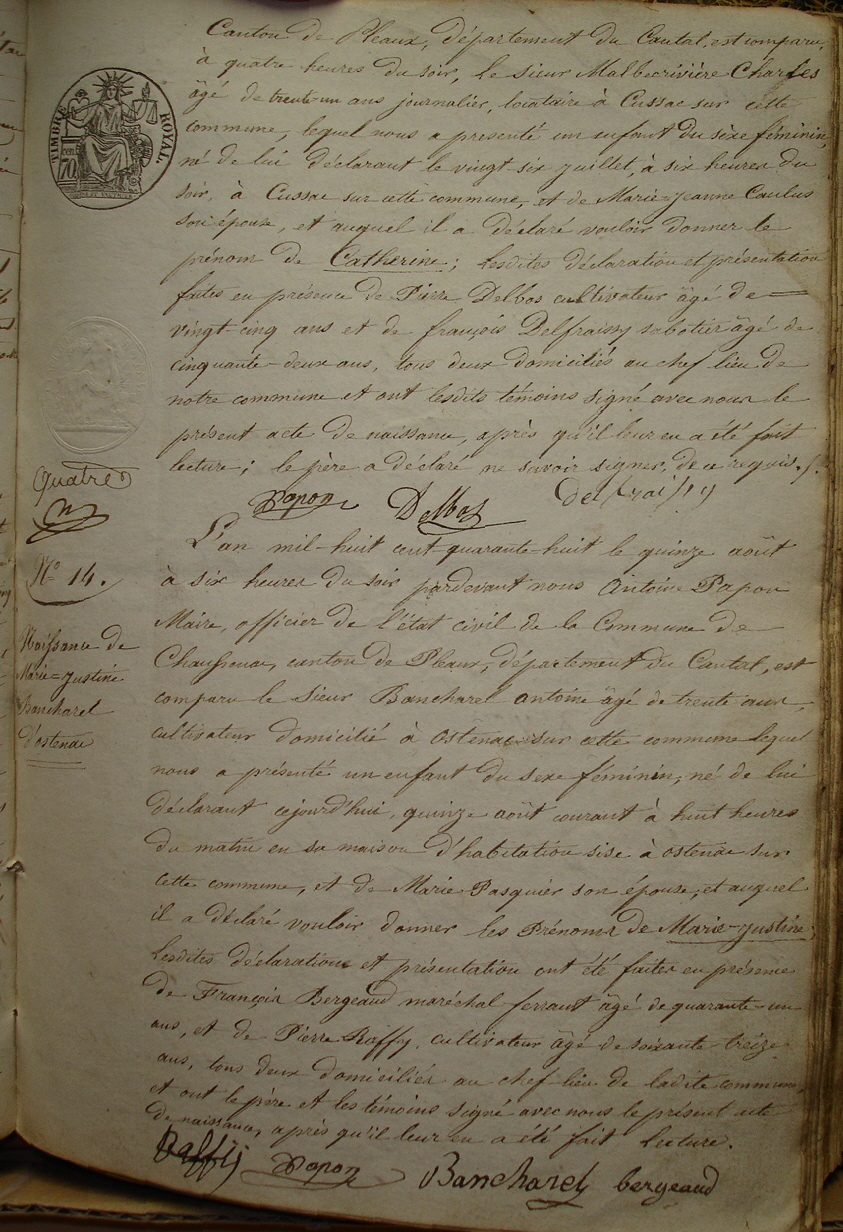 Canton de Pleaux, département du Cantal, est comparu,
à quatre heures du soir, le sieur Malbecrivière Charles
âgé de trente-un ans journalier, locataire à Cussac sur cette
commune, lequel nous a présenté un enfant du sèxe féminin,
né de lui déclarant le vingt-six juillet, à six heures du
soir, à Cussac sur cette commune, et de Marie-Jeanne Caulus
son épouse, et auquel il a déclaré vouloir donner le
prénom de Catherine; lesdites déclaration et présentation
faites en présence de Pierre Delbos cultivateur âgé de
vingt-cinq ans et de françois Delfraissy sabotier âgé de
cinquante-deux ans, tous deux domiciliés au chef lieu de
notre commune et ont lesdits témoins signé avec nous le
présent acte de naissance, après qu'il leur en a été fait
lecture; le père a déclaré ne savoir signer, de ce requis.
Papon Delbos delfraissy
TIMBRE ROYAL
70
Quatre
N° 14.
Naissance de
Marie=Justine
Bancharel
d'ostenac
L'an mil-huit cent-quarante-huit le quinze août
à six heures du soir pardevant nous Antoine Papon
Maire, officier de l'état civil de la Commune de
Chaussenac, canton de Pleaux, département du Cantal, est
comparu le sieur Bancharel antoine âgé de trente ans,
cultivateur domicilié à ostenac sur cette commune lequel
nous a présenté un enfant du sexe féminin, né de lui
déclarant cejourd'hui, quinze août courant à huit heures
du matin en sa maison d'habitation sise à ostenac sur
cette commune, et de Marie Pasquier son épouse, et auquel
il a déclaré vouloir donner les Prénoms de Marie-Justine
lesdites déclaration et présentation ont été faites en présence
de François Bergeaud maréchal ferrant âgé de quarante-un
ans, et de Pierre Raffy, cultivateur âgé de soixante treize
ans, tous deux domiciliés au chef-lieu de ladite commune,
et ont le père et les témoins signé avec nous le présent acte
de naissance, après qu'il leur en a été fait lecture.
Raffy Papon Bancharel bergeaud